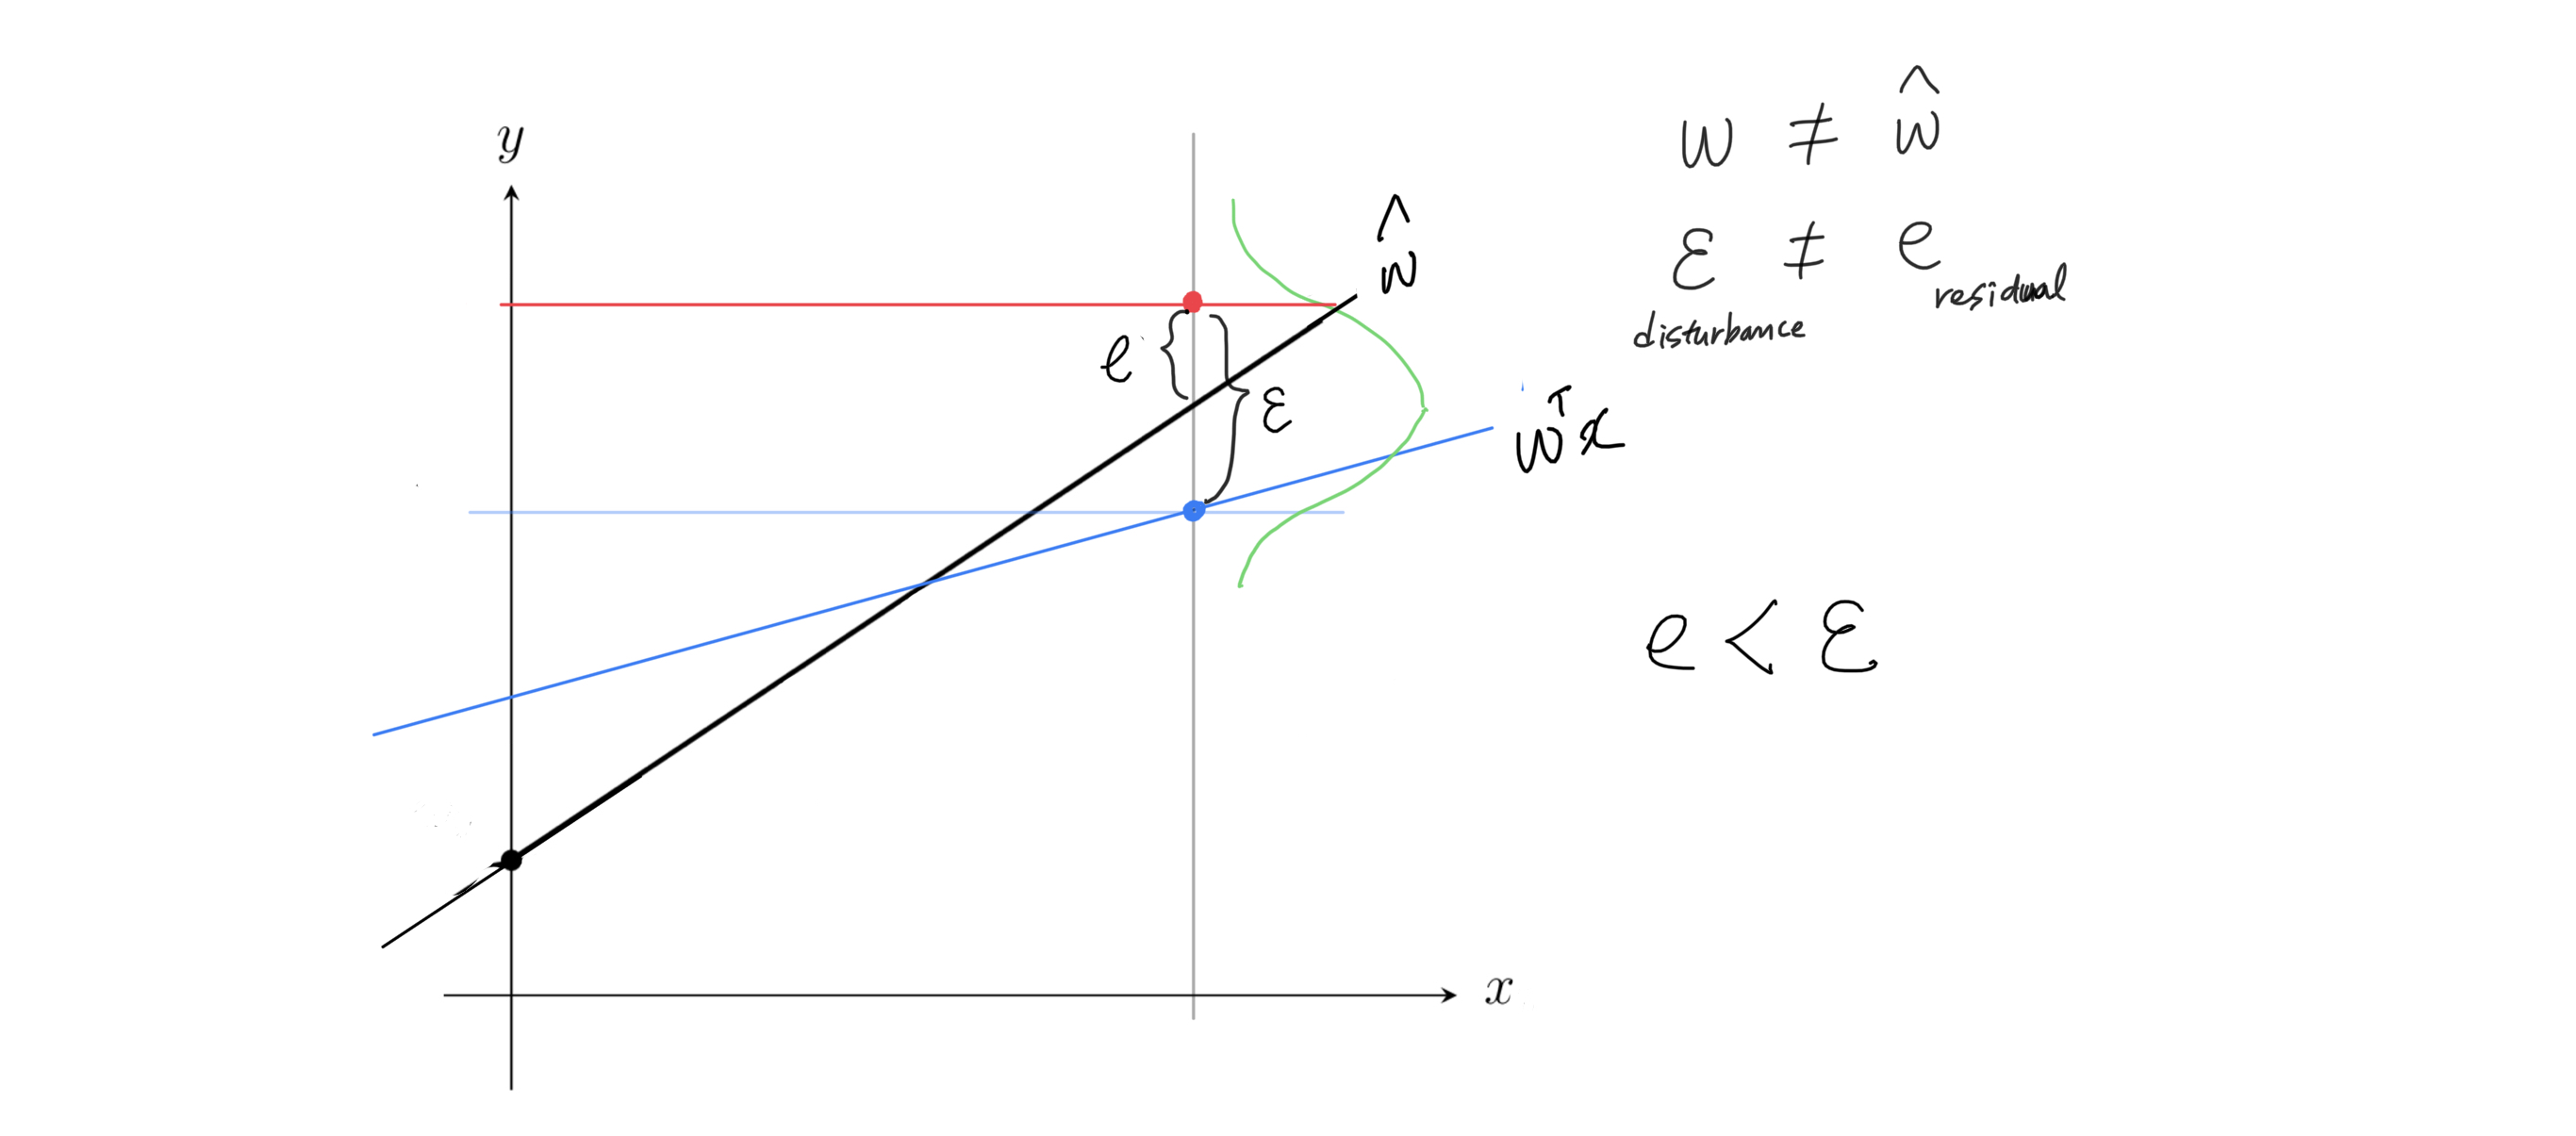 y
ŵ
e
ε
wᵀx
x
w ≠ ŵ
ε ≠ e
disturbance
residual
e < ε